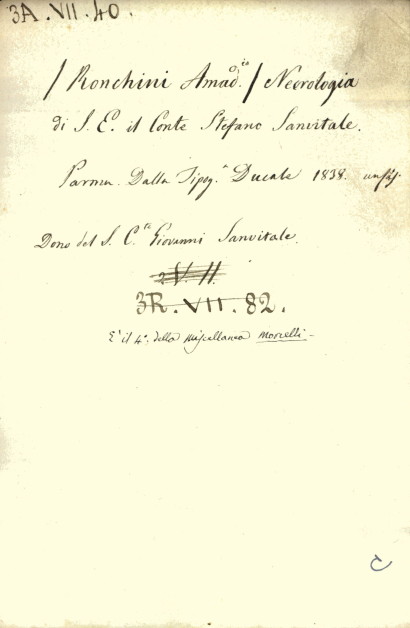 3A. VII. 40.
/ Ronchini Amad.eo / Necrologia
di S. E. il Conte Stefano Sanvitale.
Parma. Dalla Tipog.a Ducale 1838.
Dono del S. C.te Giovanni Sanvitale.
3R. VII. 82.
È il 4.o della Miscellanea Morelli -
C